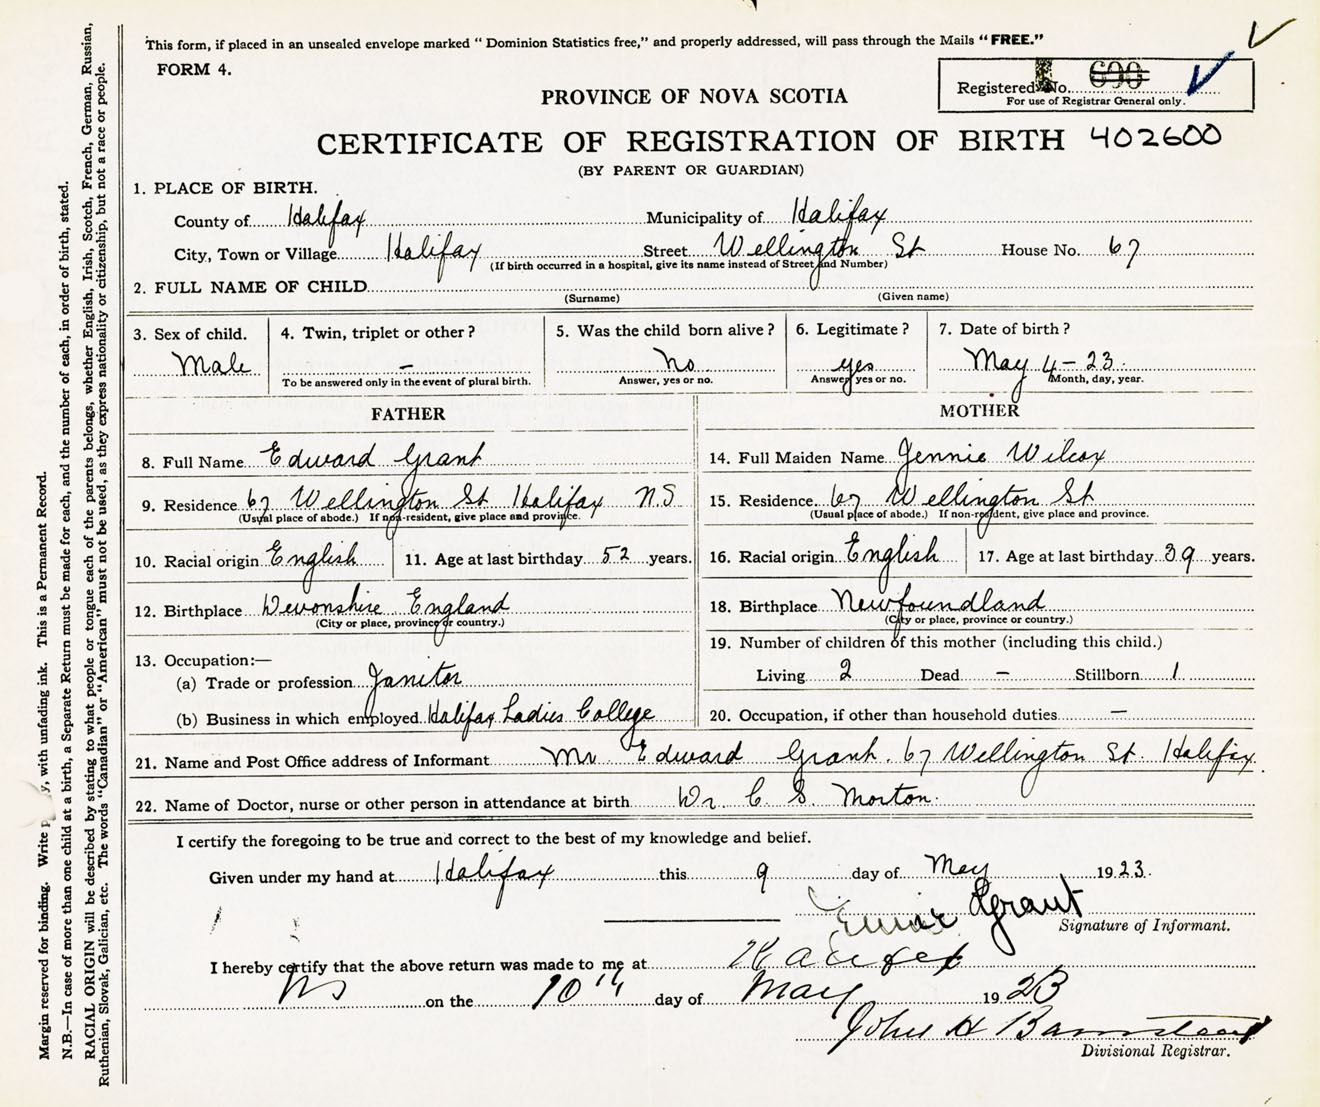 This form, if placed in an unsealed envelope marked "Dominion Statistics free," and properly addressed, will pass through the Mails "FREE."
FORM 4.
Registered No. 690
For use of Registrar General only.
PROVINCE OF NOVA SCOTIA
CERTIFICATE OF REGISTRATION OF BIRTH 402600
(BY PARENT OR GUARDIAN)
1. PLACE OF BIRTH.
County of Halifax Municipality of Halifax
City, Town or Village Halifax Street Wellington St House No. 67
(If birth occurred in a hospital, give its name instead of Street and Number)
2. FULL NAME OF CHILD
(Surname) (Given name)
3. Sex of child. 4. Twin, triplet or other? 5. Was the child born alive? 6. Legitimate? 7. Date of birth?
Male – No yes May 4 – 23.
To be answered only in the event of plural birth. Answer, yes or no. Answer yes or no. Month, day, year.
FATHER
8. Full Name Edward Grant
9. Residence 67 Wellington St Halifax N.S
(Usual place of abode.) If non-resident, give place and province.
10. Racial origin English 11. Age at last birthday 52 years.
12. Birthplace Devonshire England
(City or place, province or country.)
13. Occupation:—
(a) Trade or profession Janitor
(b) Business in which employed Halifax Ladies College
MOTHER
14. Full Maiden Name Jennie Wilcox
15. Residence. 67 Wellington St
(Usual place of abode.) If non-resident, give place and province.
16. Racial origin English 17. Age at last birthday 39 years.
18. Birthplace Newfoundland
(City or place, province or country.)
19. Number of children of this mother (including this child.)
Living 2 Dead – Stillborn 1
20. Occupation, if other than household duties –
21. Name and Post Office address of Informant Mr Edward Grant. 67 Wellington St. Halifax.
22. Name of Doctor, nurse or other person in attendance at birth Dr. C S. Morton.
I certify the foregoing to be true and correct to the best of my knowledge and belief.
Given under my hand at Halifax this 9 day of May 1923.
Grant
Signature of Informant.
I hereby certify that the above return was made to me at Halifax
NS on the 10th day of May 1923
John H Barnstead
Divisional Registrar.
Margin reserved for binding. Write with unfading ink. This is a Permanent Record.
N.B.—In case of more than one child at a birth, a Separate Return must be made for each, and the number of each, in order of birth, stated.
RACIAL ORIGIN will be described by stating to what people or tongue each of the parents belongs, whether English, Irish, Scotch, French, German, Russian,
Ruthenian, Slovak, Galician, etc. The words "Canadian" or "American" must not be used, as they express nationality or citizenship, but not a race or people.